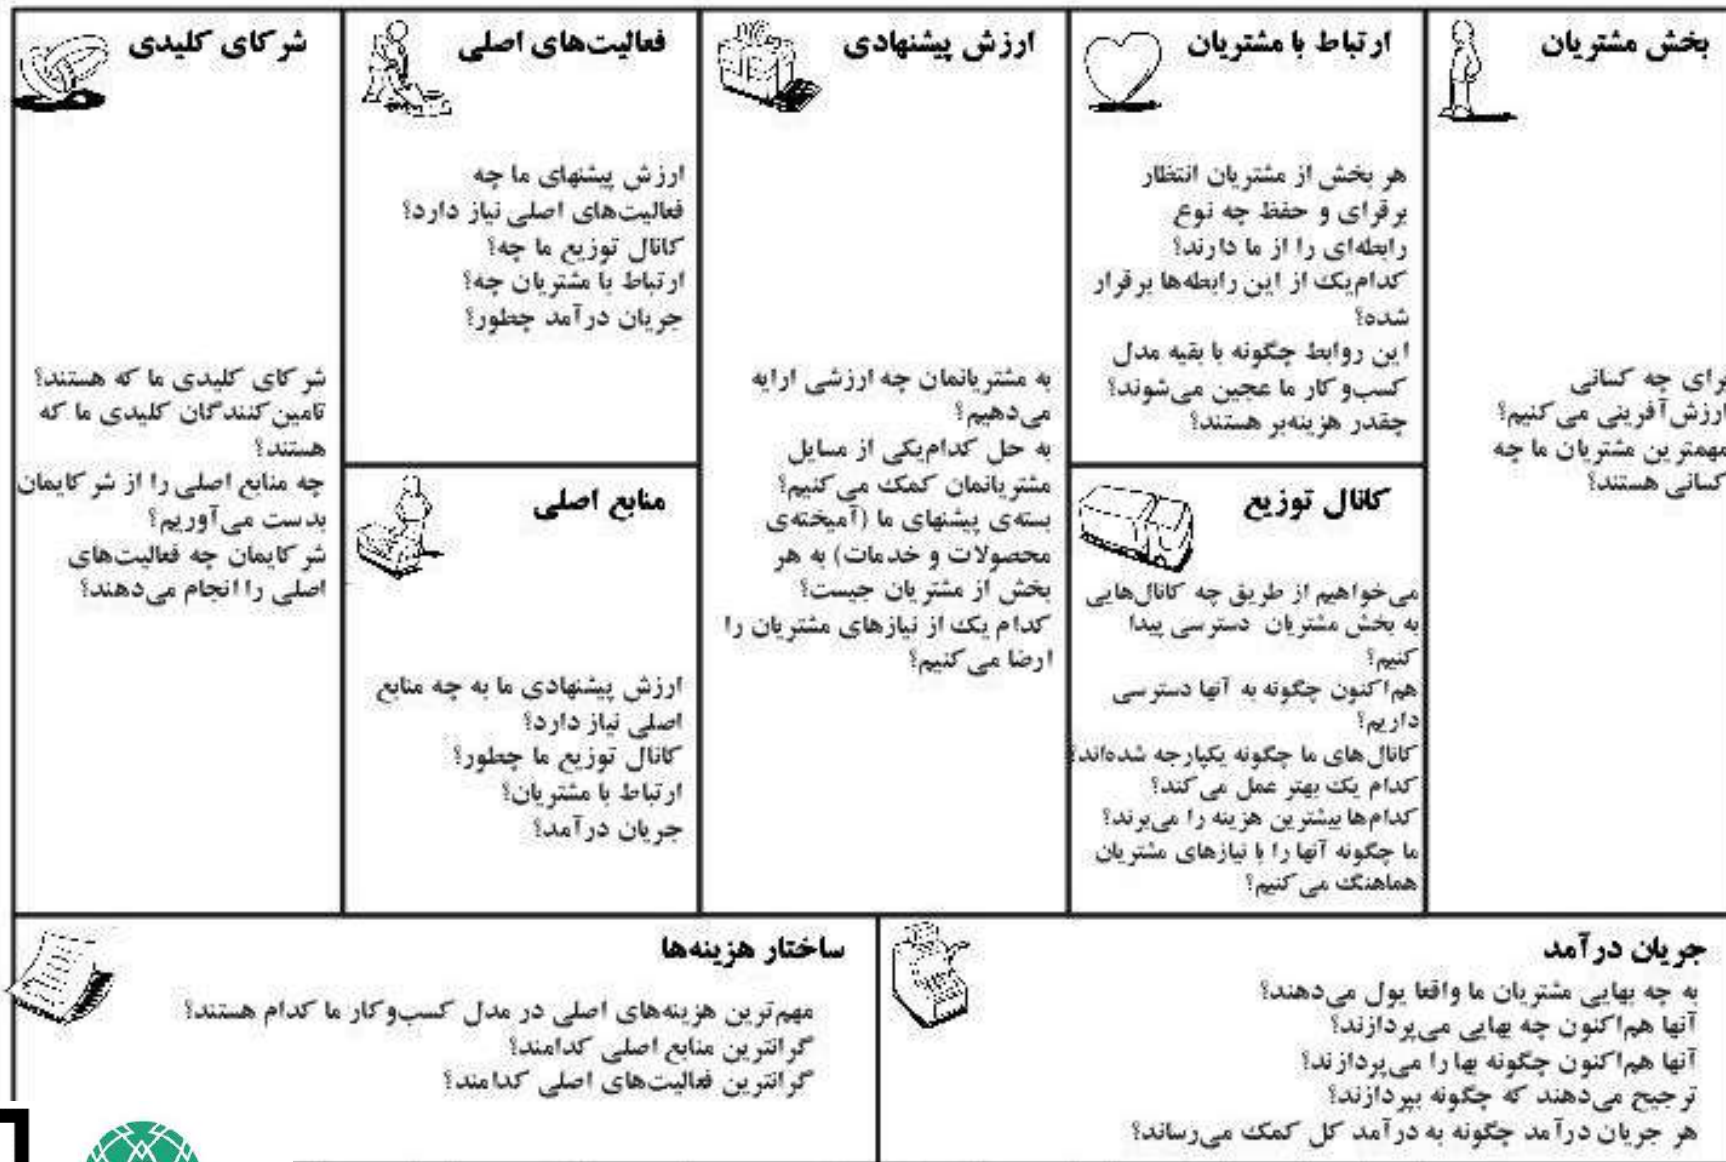 بخش مشتریان
برای چه کسانی
ارزش‌آفرینی می‌کنیم؟
مهمترین مشتریان ما چه
کسانی هستند؟
ارتباط با مشتریان
هر بخش از مشتریان انتظار
برقرای و حفظ چه نوع
رابطه‌ای را از ما دارند؟
کدام‌یک از این رابطه‌ها برقرار
شده؟
این روابط چگونه با بقیه مدل
کسب‌و کار ما عجین می‌شوند؟
چقدر هزینه‌بر هستند؟
کانال توزیع
می‌خواهیم از طریق چه کانال‌هایی
به بخش مشتریان دسترسی پیدا
کنیم؟
هم‌اکنون چگونه به آنها دسترسی
داریم؟
کانال‌های ما چگونه یکپارچه شده‌اند؟
کدام یک بهتر عمل می‌کند؟
کدام‌ها بیشترین هزینه را می‌برند؟
ما چگونه آنها را با نیازهای مشتریان
هماهنگ می‌کنیم؟
ارزش پیشنهادی
به مشتریانمان چه ارزشی ارایه
می‌دهیم؟
به حل کدام‌یکی از مسایل
مشتریانمان کمک می‌کنیم؟
بسته‌ی پیشنهای ما (آمیخته‌ی
محصولات و خدمات) به هر
بخش از مشتریان چیست؟
کدام یک از نیازهای مشتریان را
ارضا می‌کنیم؟
فعالیت‌های اصلی
ارزش پیشنهای ما چه
فعالیت‌های اصلی نیاز دارد؟
کانال توزیع ما چه؟
ارتباط با مشتریان چه؟
جریان درآمد چطور؟
منابع اصلی
ارزش پیشنهادی ما به چه منابع
اصلی نیاز دارد؟
کانال توزیع ما چطور؟
ارتباط با مشتریان؟
جریان درآمد؟
شرکای کلیدی
شرکای کلیدی ما که هستند؟
تامین‌کنندگان کلیدی ما که
هستند؟
چه منابع اصلی را از شرکایمان
بدست می‌آوریم؟
شرکایمان چه فعالیت‌های
اصلی را انجام می‌دهند؟
جریان درآمد
به چه بهایی مشتریان ما واقعا پول می‌دهند؟
آنها هم‌اکنون چه بهایی می‌پردازند؟
آنها هم‌اکنون چگونه بها را می‌پردازند؟
ترجیح می‌دهند که چگونه بپردازند؟
هر جریان درآمد چگونه به درآمد کل کمک می‌رساند؟
ساختار هزینه‌ها
مهم‌ترین هزینه‌های اصلی در مدل کسب‌وکار ما کدام هستند؟
گرانترین منابع اصلی کدامند؟
گرانترین فعالیت‌های اصلی کدامند؟